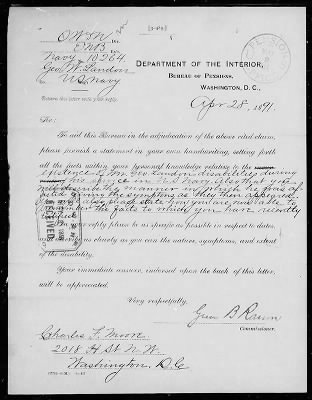 O.W.S.W.
E.N.B.
Navy 10264
Geo. W. Landon
U.S. Navy
Return this letter with your reply.
DEPARTMENT OF THE INTERIOR,
BUREAU OF PENSIONS,
WASHINGTON, D. C.,
Apr 28, 1891.
To aid this Bureau in the adjudication of the above cited claim,
please furnish a statement in your own handwriting, setting forth
all the facts within your personal knowledge relating to the
existence of Mr Geo. Landon disabilities during
his service in U.S. Navy also that you
will describe the manner in which he was af-
giving the symptoms as they then appeared
also please state how you are now able to
remember the facts to which you have recently
testified
RECEIVED
In your reply please be as specific as possible in respect to dates,
and describe as clearly as you can the nature, symptoms, and extent
of the disability.
Your immediate answer, indorsed upon the back of this letter,
will be appreciated.
Very respectfully,
Green B Raum
Commissioner.
Charles F. Moore
2018 H St. N.W.
Washington, D.C.